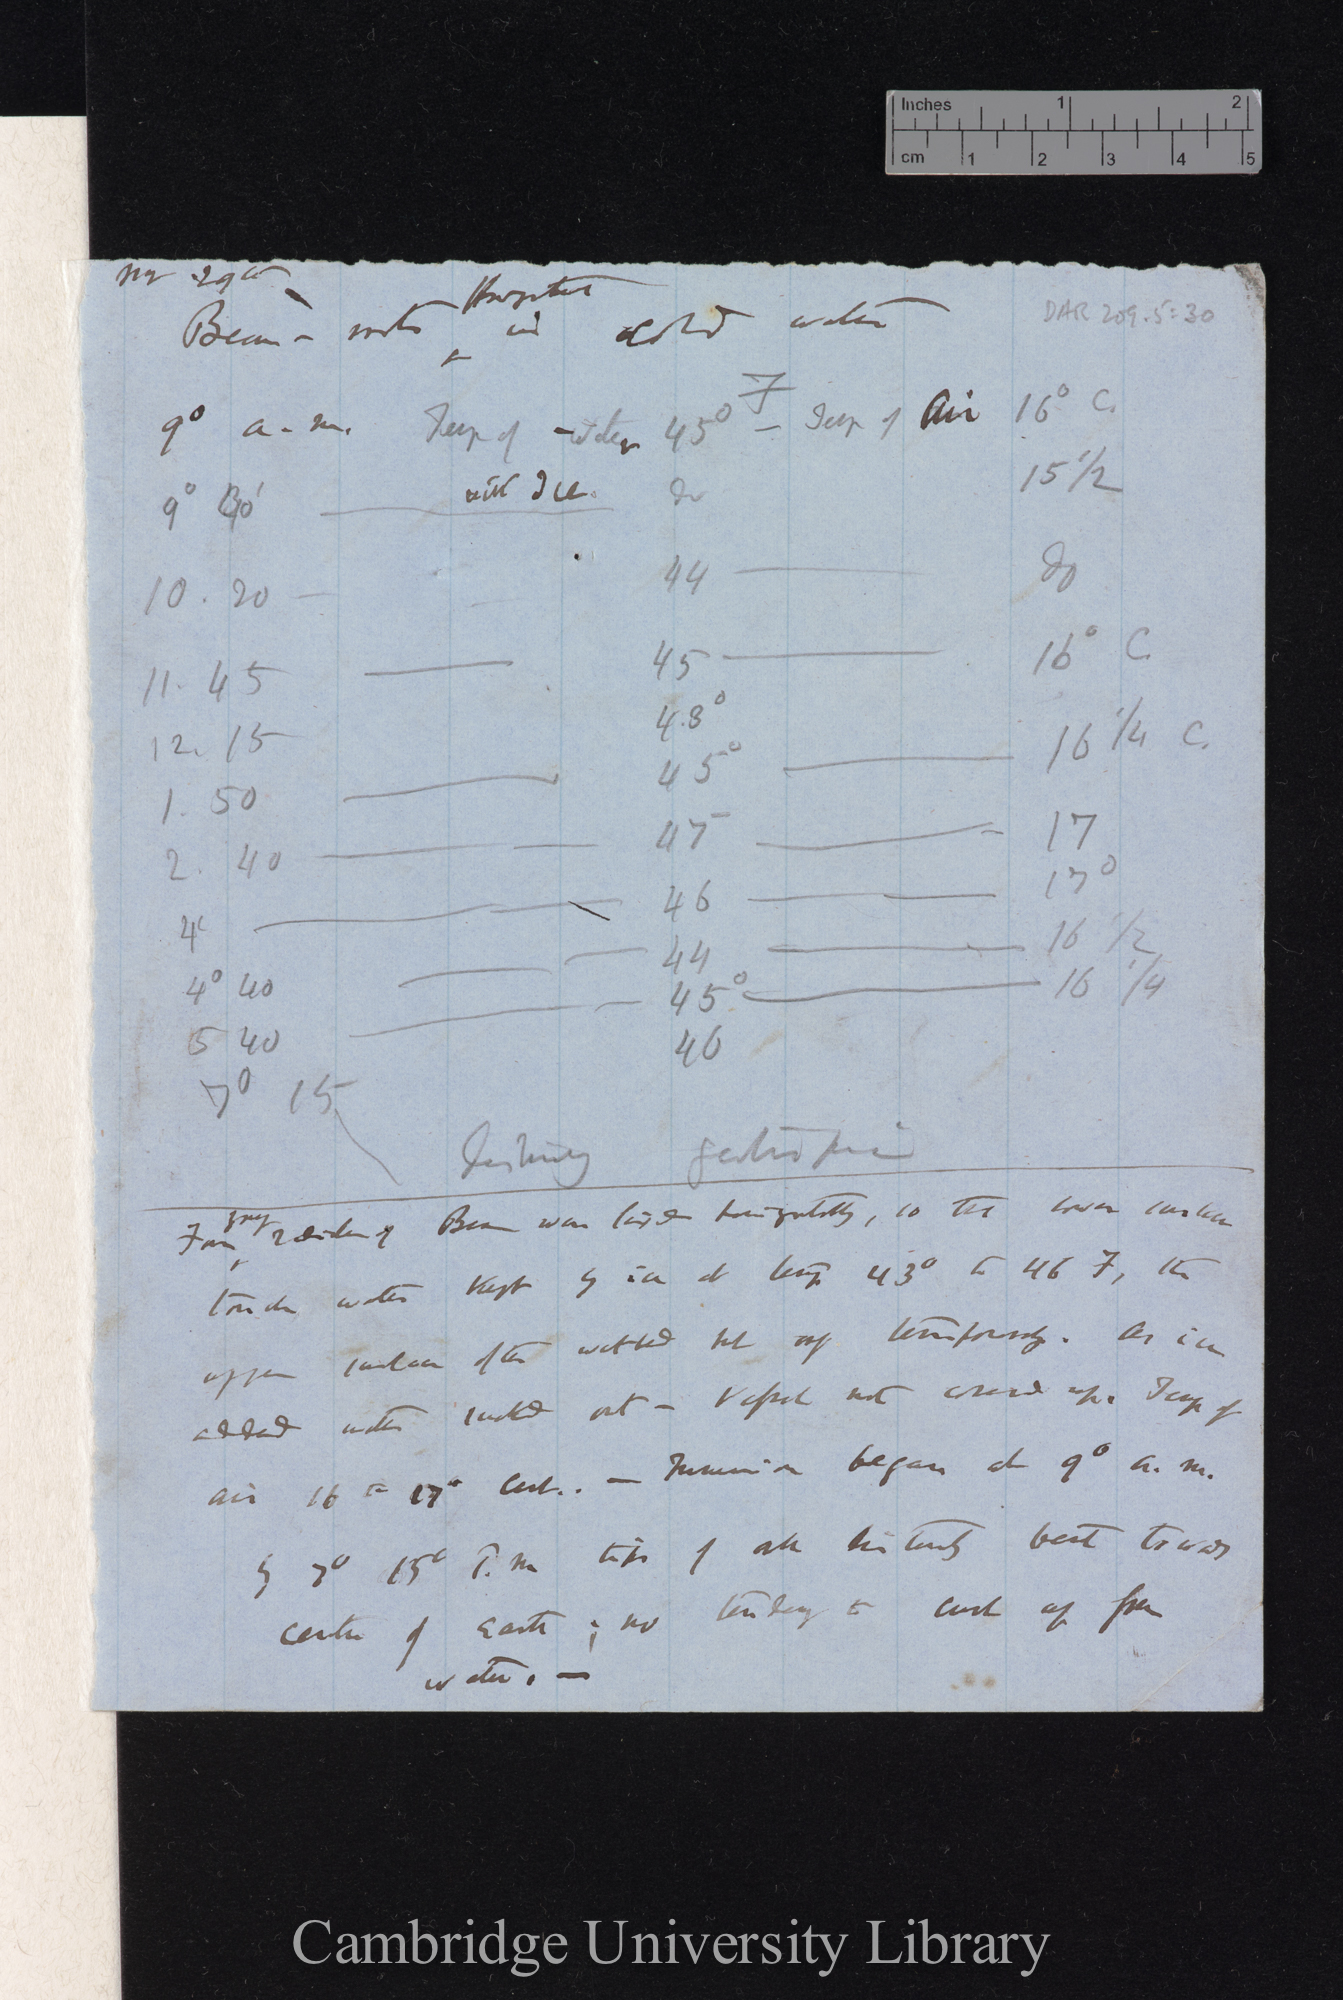 Inches 1 2
cm 1 2 3 4 5
29th
DAR 209.5:30
Bean - roots in cold water
9° a.m. Temp of water 45° F - Temp of Air 16° C.
with Ice. do 15 1/2
10. 20 44 do
11. 45 45 16° C.
12. 15 48°
1. 50 45° 16 1/4 C.
2. 40 47 17
4° 46 17°
4° 40 44 16 1/2
5 40 45° 16 1/4
7° 15 46
geotropism
Bean was laid horizontally, so that lower surface
touch water kept by ice at temp 43° to 46 F, the
upper surface often wetted but only temporarily. As ice
added water sucked out - Vessel not covered up. Temp of
air 16 to 17° Cent. - Immersion began at 9° a.m.
By 7° 15' P.m tips of all distinctly bent towards
centre of Earth; no tendency to curl up from
water. -
Cambridge University Library